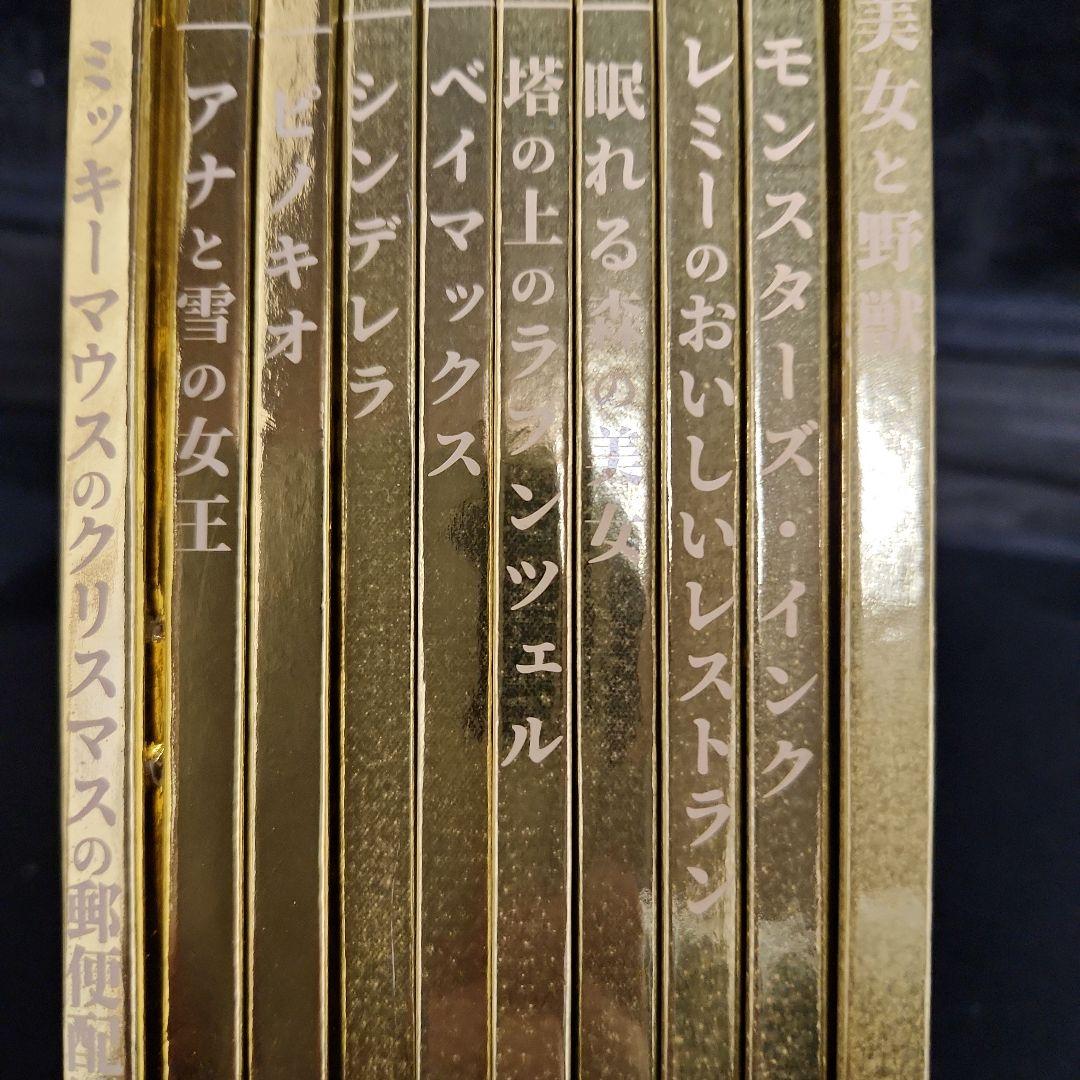 ミッキーマウスのクリスマスの郵便配
アナと雪の女王
ピノキオ
シンデレラ
ベイマックス
塔の上のラプンツェル
眠れる森の美女
レミーのおいしいレストラン
モンスターズ・インク
美女と野獣